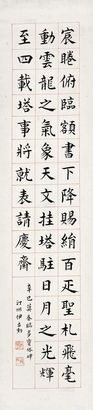 宸睠俯臨額書下降賜絹百疋聖札飛毫
動雲龍之氣象天文挂塔駐日月之光輝
至四載塔事將就表請慶齋
辛巳莫春臨多寶塔碑
汀州伊立勳